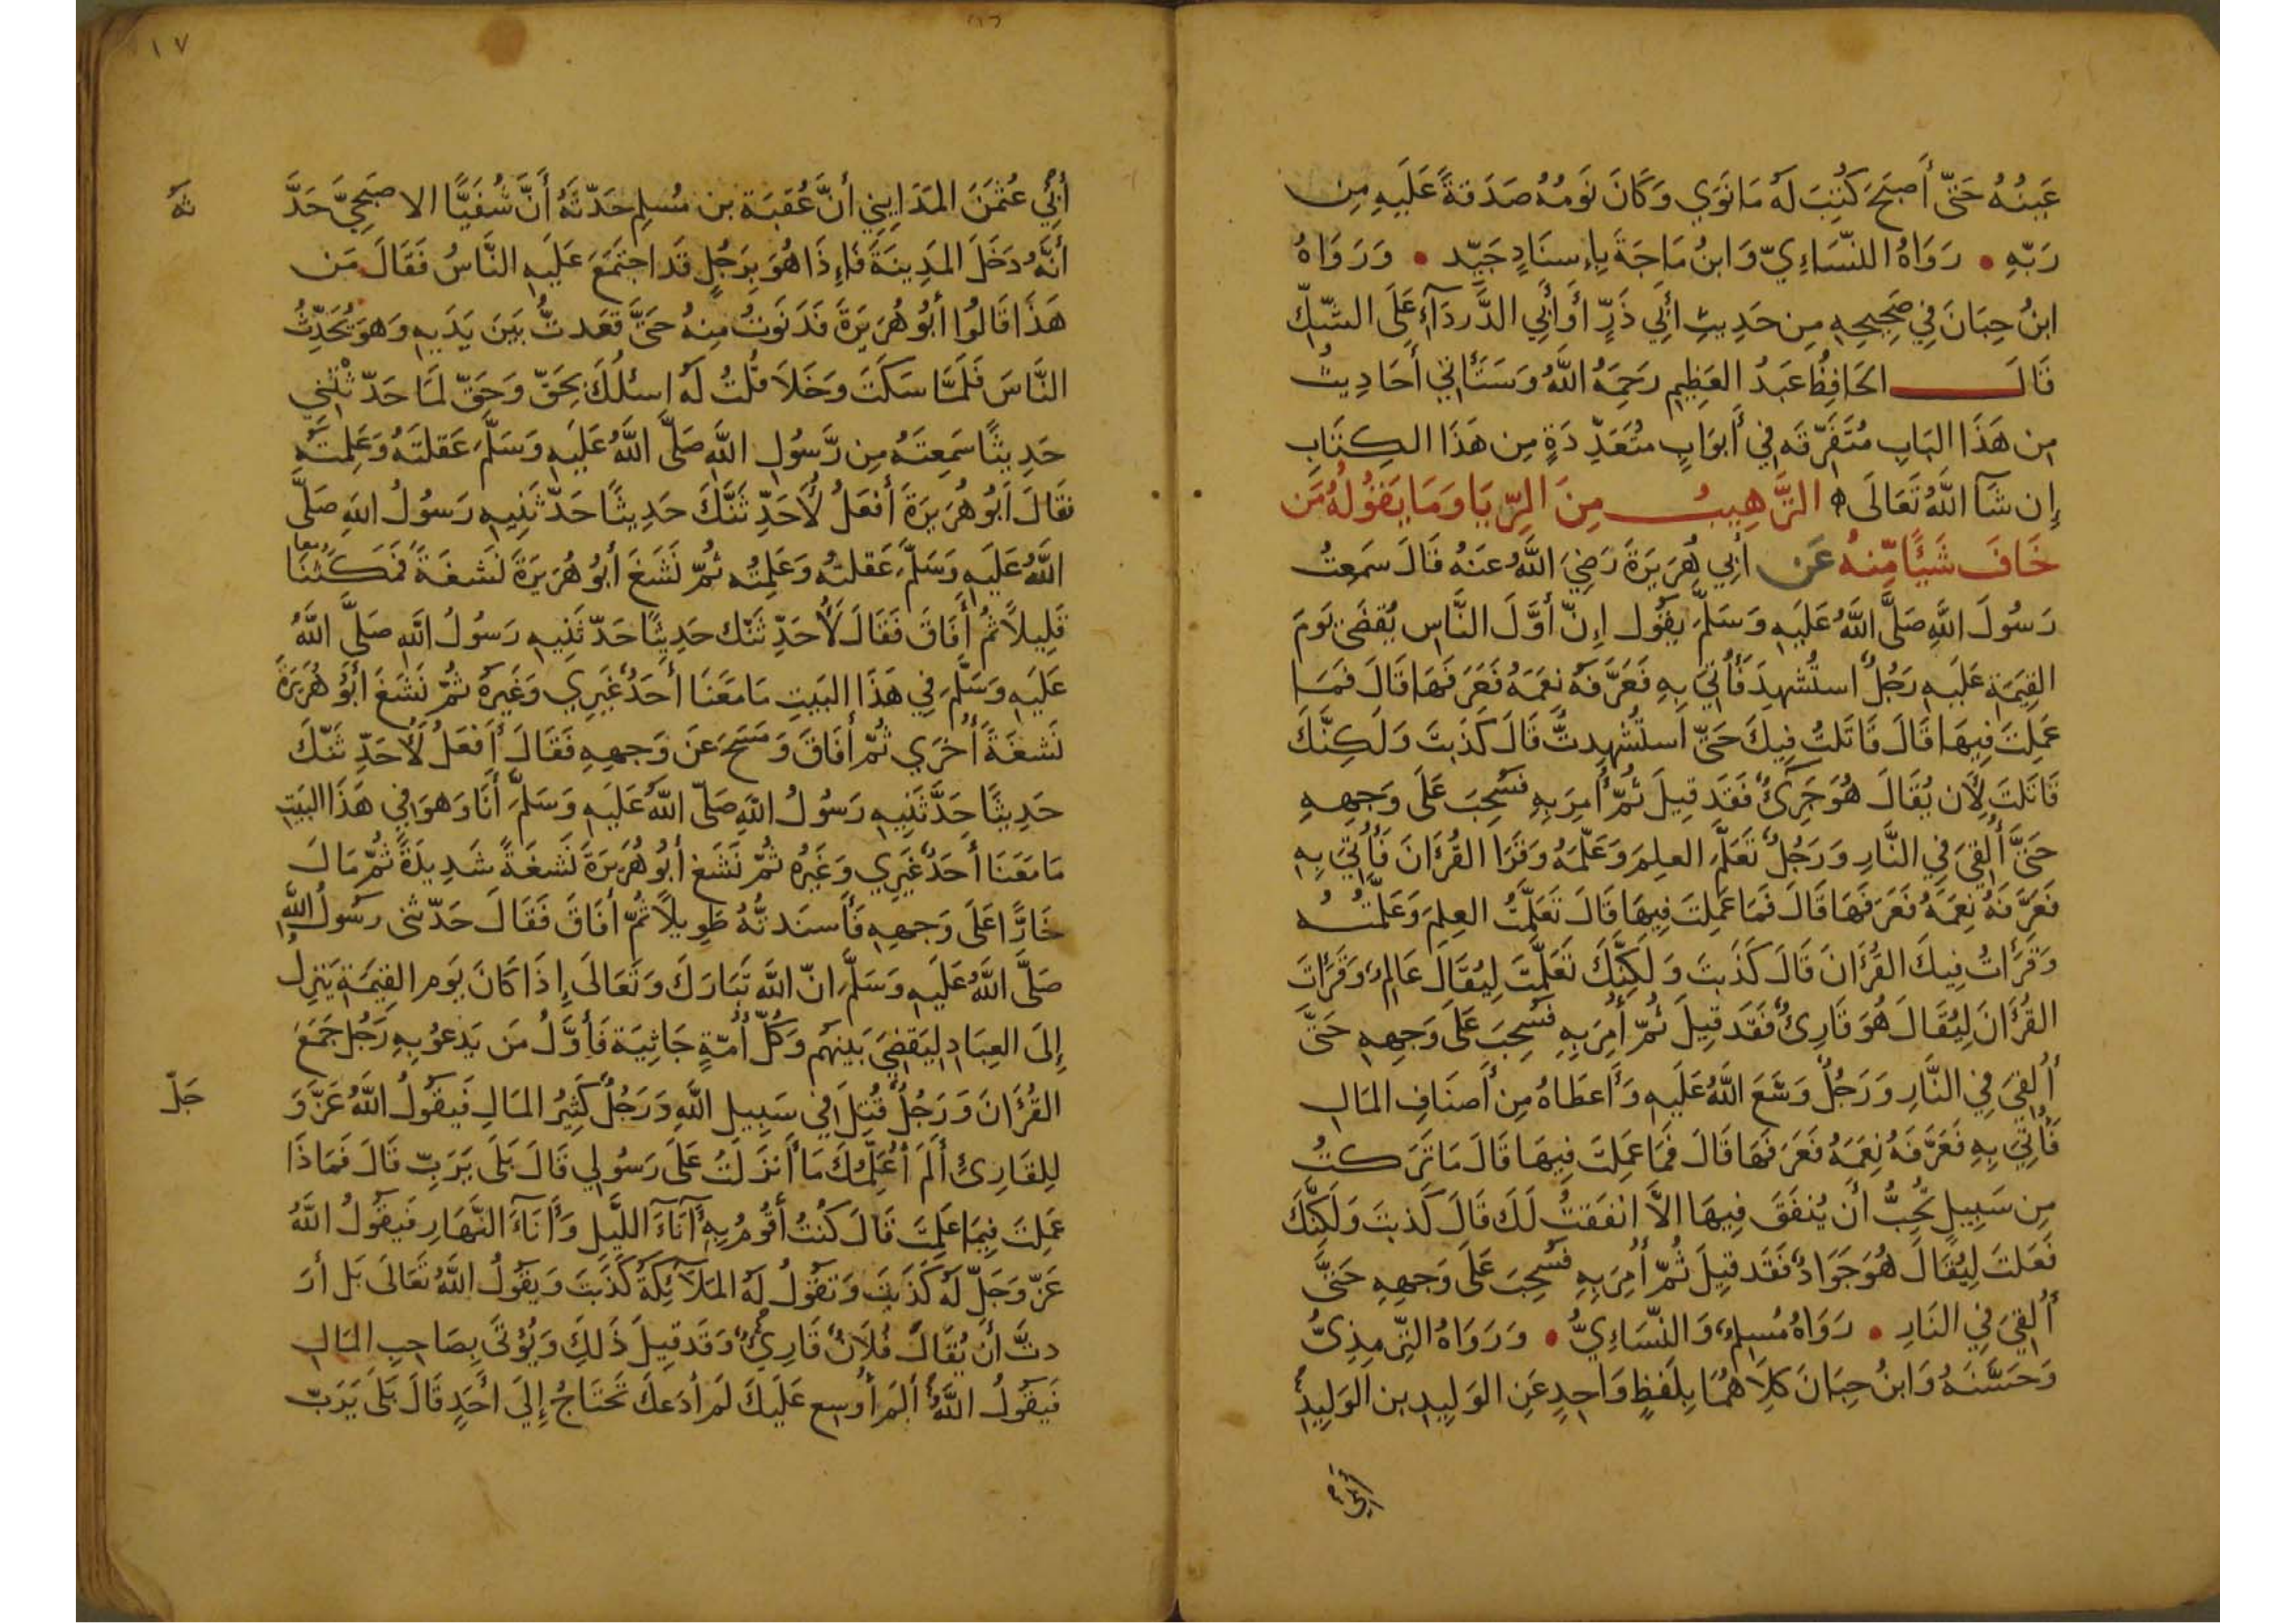 عَينُهُ حَتَّى أَصبَحَ كُتِبَ لَهُ مَا نَوَي وَكَانَ نَومُهُ صَدَقَةً عَلَيهِ مِن
رَبّهِ • رَوَاهُ النّسَاءِيّ وَابنُ مَاجَةَ بِاءِسنَادٍ جَيّد • وَرَوَاهُ
ابنُ حِبَانَ فِي صَحِيحِهِ مِن حَدِيثِ أَبِي ذَرٍّ أَو أَبِي الدَّردَآءِ عَلَى الشّكّ
قَالَ الحَافِظُ عَبدُ العَظِيمِ رَحِمَهُ اللَّهُ وَسَتَأتي أَحَادِيثُ
مِن هَذَا البَابِ مُتَفَرّقَه فِي أَبوَابٍ مُتَعَدِّدَةٍ مِن هَذَا الكِتَابِ
إِن شَآ اللَّهُ تَعَالَى ه التَّرهِيبُ مِنَ الرّيَا وَمَا يَقُولُهُ مَن
خَافَ شَيًا مِّنهُ عَن أَبِي هُرَيرَةَ رَضِيَ اللَّهُ عَنهُ قَالَ سَمِعتُ
رَسُولَ اللَّهِ صَلَّى اللَّهُ عَلَيهِ وَسَلَّمَ يَقُول إِنّ أَوَّلَ النَّاسِ يُقضَى يَومَ
القِيَمَةِ عَلَيهِ رَجُلٌ استُشهِدَ فَأُتِيَ بِهِ فَعَرَّفَهُ نِعَمَهُ فَعَرَفَهَا قَالَ فَمَا
عَمِلتَ فِيهَا قَالَ قَاتَلتُ فِيكَ حَتّى استُشهِدتُّ قَالَ كَذَبتَ وَلَكِنَّكَ
قَاتَلتَ لِأَن يُقَالَ هُوَ جَرِئٌ فَقَد قِيلَ ثُمّ أُمِرَ بِهِ فَسُحِبَ عَلَى وَجهِهِ
حَتَّى أُلقِيَ فِي النَّارِ وَرَجُلٌ تَعَلَّمَ العِلمَ وَعَلّمَهُ وَقَرَا القُرَّانَ فَأُتِيَ بِهِ
فَعَرَّفَهُ نِعَمَهُ فَعَرَفَهَا قَالَ فَمَا عَمِلتَ فِيهَا قَالَ تَعَلّمتُ العِلمَ وَعَلّمتُهُ
وَقَرَاتُ فِيكَ القُرَّانَ قَالَ كَذَبتَ وَلَكِنَّكَ تَعَلّمتَ لِيُقَالَ عَالِمٌ وَقَرَاتَ
القُرَّانَ لِيُقَالَ هُوَ قَارِئٌ فَقَد قِيلَ ثُمّ أُمِرَ بِهِ فَسُحِبَ عَلَى وَجهِهِ حَتَّى
أُلقِيَ فِي النَّارِ وَرَجُلٌ وَسَّعَ اللَّهُ عَلَيهِ وَأَعطَاهُ مِن أَصنَافِ المَالِ
فَأُتِيَ بِهِ فَعَرَّفَهُ نِعَمَهُ فَعَرَفَهَا قَالَ فَمَا عَمِلتَ فِيهَا قَالَ مَا تَرَكتُ
مِن سَبِيلٍ تُحِبُّ أَن يُنفَقَ فِيهَا الاَّ انفَقتُ لَكَ قَالَ كَذَبتَ وَلَكِنَّكَ
فَعَلتَ لِيُقَالَ هُوَ جَوَادٌ فَقَد قِيلَ ثُمّ أُمِرَ بِهِ فَسُحِبَ عَلَى وَجهِهِ حَتَّى
أُلقِيَ فِي النَارِ • رَوَاهُ مُسلِمٌ وَالنّسَاءِيُّ • وَرَوَاهُ التِّرمِذِيُّ
وَحَسَّنَهُ وَابنُ حِبَانَ كِلَاهُمَا بِلَفظٍ وَاحِدٍ عَنِ الوَلِيدِ بن الوَلِيدِ
١٧
أَبِي عُثمَنَ المَدَايِنِي أَنَّ عُقبَةَ بن مُسلِم حَدّثَهُ أَنَّ شُفَيًّا الاصبَحِيَّ حَدَّ
ثه
أَنَّهُ دَخَلَ المَدِينَةَ فَاءِذَا هُوَ بِرَجُلٍ قَد اجتَمَعَ عَلَيهِ النَّاسُ فَقَالَ مَن
هَذَا قَالُوا أَبُو هُرَيرَةَ فَدَنَوتُ مِنهُ حَتَّى قَعَدتُّ بَينَ يَدَيهِ وَهوَ يُحَدِّثُ
النَّاسَ فَلَمَّا سَكَتَ وَخَلَا قُلتُ لَهُ اسئلُكَ بِحَقّ وَحَقّ لَمَا حَدّثتَنِي
حَدِيثًا سَمِعتَهُ مِن رَّسُولِ اللَّهِ صَلَّى اللَّهُ عَلَيهِ وَسَلَّمَ عَقلتَهُ وَعَلِمتَهُ
فقَالَ أَبُو هُرَيرَةَ أَفعَلُ لَأُحَدِّثَنَّكَ حَدِيثًا حَدّثَنِيهِ رَسُولُ اللَّهِ صَلَّى
اللَّهُ عَلَيهِ وَسَلَّمَ عَقلتُهُ وَعَلِمتُه ثُمّ نَشَغَ أَبُو هُرَيرَةَ نَشغَةً فَمَكَثنَا
قَلِيلاً ثُمّ أَفَاقَ فَقَالَ لَأُحَدِّثَنَّك حَدِيثًا حَدّثَنِيهِ رَسُولُ اللَّهِ صَلَّى اللَّهُ
عَلَيهِ وَسَلَّمَ فِي هَذَا البَيتِ مَا مَعَنَا أَحَدٌ غَيرِي وَغَيرهُ ثُمّ نَشَغَ أَبُو هُرَيرَةَ
نَشغَةً أُخرَي ثُمّ أَفَاقَ وَمَسَحَ عَن وَجهِهِ فَقَالَ أَفعَلُ لَأُحَدِّثَنّكَ
حَدِيثًا حَدَّثَنِيهِ رَسُولُ اللَّهِ صَلّى اللَّهُ عَلَيهِ وَسَلَّمَ أَنَا وَهوَ فِي هَذَا البَيتِ
مَا مَعَنَا أَحَدٌ غَيرِي وَغَيرُه ثُمّ نَشَغَ أَبُو هُرَيرَةَ نَشغَةً شَدِيدَةً ثُمّ مَالَ
خَارًّا عَلَى وَجهِهِ فَأَسنَدتُّهُ طَوِيلاً ثُمّ أَفَاقَ فَقَالَ حَدّثنى رَسُولُ اللَّهِ
صَلَّى اللَّهُ عَلَيهِ وَسَلَّمَ انّ اللَّهَ تَبَارَكَ وَتَعَالَى إِذَا كَانَ يَوم القِيَمَةِ يَنزِلُ
إِلَى العِبَادِ لِيَقضِيَ بَينَهُم وَكُلّ أُمّةٍ جَاثِيَة فَأَوَّلُ مَن يَدعُو بِهِ رَجُل جَمَعَ
القُرَّانَ وَرَجُلٌ قُتِلَ فِي سَبِيلِ اللَّهِ وَرَجُلٌ كَثِيرُ المَالِ فَيَقُولُ اللَّهُ عَزَّ وَ
جَلّ
لِلقَارِئِ أَلَم أُعَلِّمكَ مَا أَنزَلتُ عَلَى رَسُولِي قَالَ بَلَى يَرَبِّ قَالَ فَمَاذَا
عَمِلتَ فِيمَا عَلِمتَ قَالَ كُنتُ أَقُومُ بِهِ آنَآءَ اللَّيلِ وَآنَآءَ النَّهَارِ فَيَقُولُ اللَّهُ
عَزّ وَجَلّ لَهُ كَذَبتَ وَتَقُولُ لَهُ المَلآئِكَةُ كَذَبتَ وَيَقُولُ اللَّهُ تَعَالَى بَل أَرَ
دتَّ أَن يُقَالَ فُلَانٌ قَارِئٌ وَقَد قِيلَ ذَلِكَ وَيُؤتَى بِصَاحِبِ المَالِ
فَيَقُولُ اللَّهُ أَلَم أُوسِع عَلَيكَ لَم أَدَعكَ تَحتَاجُ إِلَى أَحَدٍ قَالَ بَلَى يَرَبّ